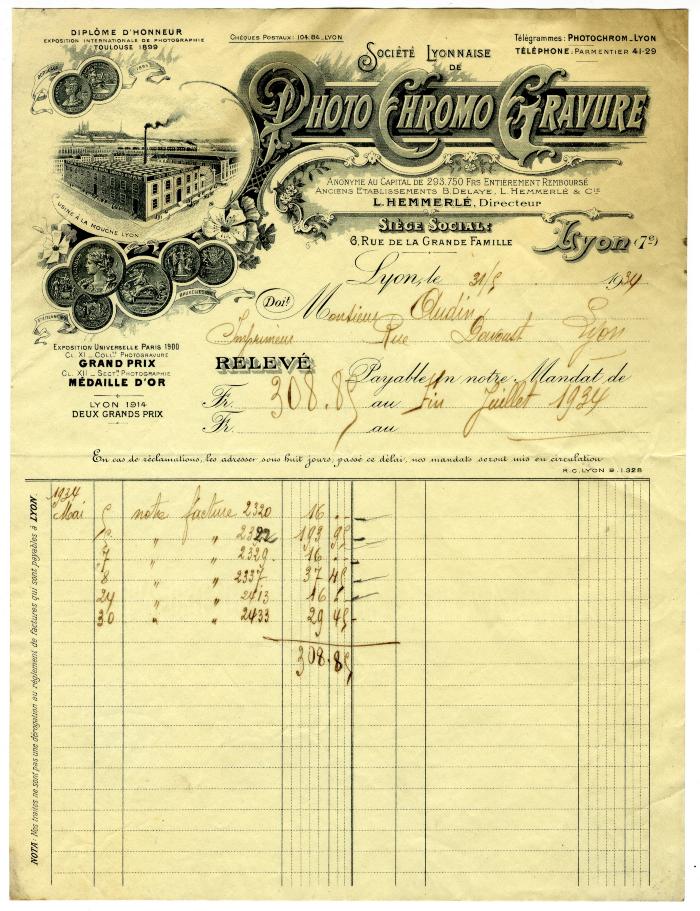 DIPLÔME D'HONNEUR
EXPOSITION INTERNATIONALE DE PHOTOGRAPHIE
TOULOUSE 1899
CHÈQUES POSTAUX: 104.84_LYON
Télégrammes: PHOTOCHROM_LYON
TÉLÉPHONE: PARMENTIER 41-29
SOCIÉTÉ LYONNAISE
DE
PHOTO CHROMO GRAVURE
ANONYME AU CAPITAL DE 293.750 FRS ENTIÈREMENT REMBOURSÉ
ANCIENS ETABLISSEMENTS B. DELAYE, L. HEMMERLÉ & CIE
L. HEMMERLÉ, Directeur
SIÈGE SOCIAL:
6, RUE DE LA GRANDE FAMILLE
Lyon (7e)
USINE À LA MOUCHE LYON
BRUXELLES
Lyon, le 31/5 1934
Doit Monsieur Audin
Imprimeur Rue Davoust Lyon
EXPOSITION UNIVERSELLE PARIS 1900
CL. XI _ COLLté PHOTOGRAVURE
GRAND PRIX
CL. XII _ SECTn PHOTOGRAPHIE
MÉDAILLE D'OR
LYON 1914
DEUX GRANDS PRIX
RELEVÉ Payable en notre Mandat de
Fr. 308.85 au fin Juillet 1934
Fr. au
En cas de réclamations, les adresser sous huit jours, passé ce délai, nos mandats seront mis en circulation
R.C. LYON B. 1.328
NOTA: Nos traites ne sont pas une dérogation au règlement de factures qui sont payables à LYON
1934
Mai 5 notre facture 2320 16 . -
5 " " 2322 193 95
7 " " 2329 16 . -
8 " " 2337 37 45
24 " " 2413 16 -
30 " " 2433 29 45
308.85